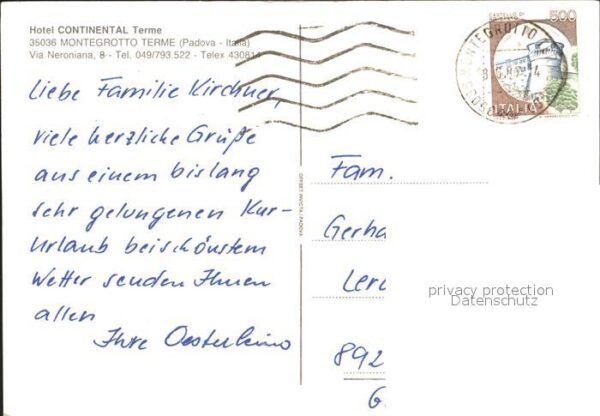 Hotel CONTINENTAL Terme
35036 MONTEGROTTO TERME (Padova - Italia)
Via Neroniana, 8 - Tel. 049/793.522 - Telex 430814
Liebe Familie Kirchner,
viele herzliche Grüße
aus einem bislang
sehr gelungenen Kur-
Urlaub bei schönstem
Wetter senden Ihnen
allen
Ihre
500
ITALIA
MONTEGROTTO
OFFSET INVICTA-PADOVA
Fam.
Gerha
Lerc
892
G
privacy protection
Datenschutz